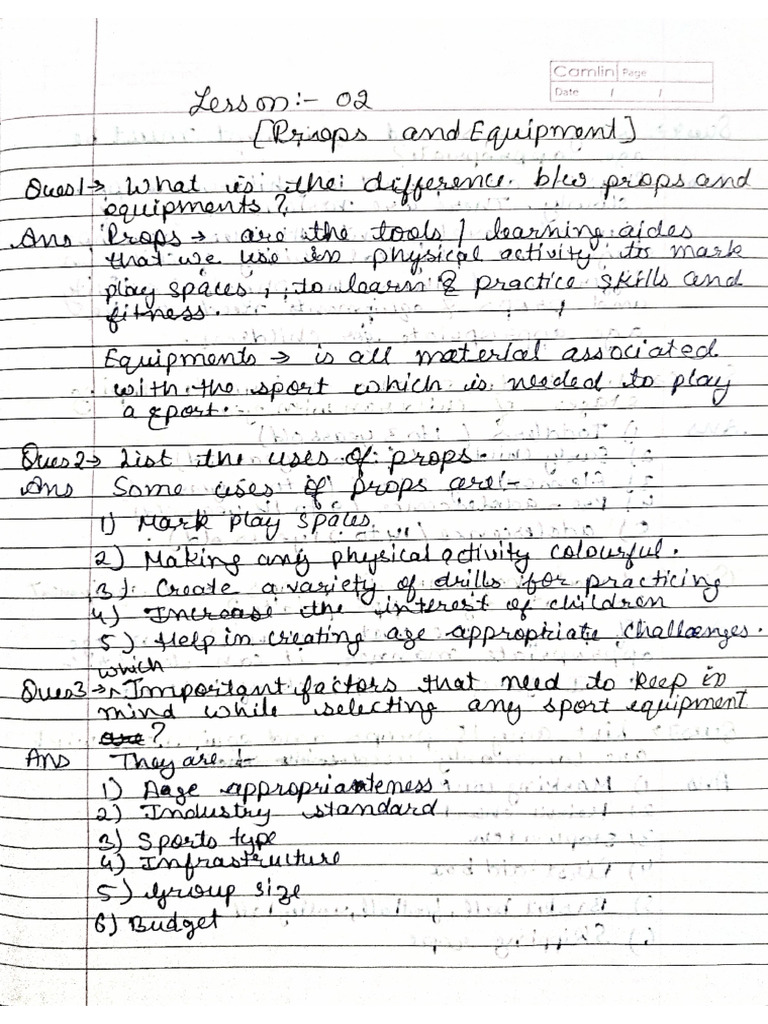 Camlin Page
Date / /
Lesson:- 02
[Props and Equipment]
Ques1→ What is the difference b/w props and
equipments?
Ans Props → are the tools / learning aides
that we use in physical activity to mark
play spaces, to learn & practice skills and
fitness.
Equipments → is all material associated
with the sport which is needed to play
a sport.
Ques2→ List the uses of props.
Ans Some uses of props are:-
1) Mark play spaces.
2) Making any physical activity colourful.
3) Create a variety of drills for practicing
4) Increase the interest of children
5) Help in creating age appropriate challenges.
which
Ques3→ Important factors that need to keep in
mind while selecting any sport equipment
are?
Ans They are :-
1) Age appropriateness
2) Industry standard
3) Sports type
4) Infrastructure
5) Group size
6) Budget